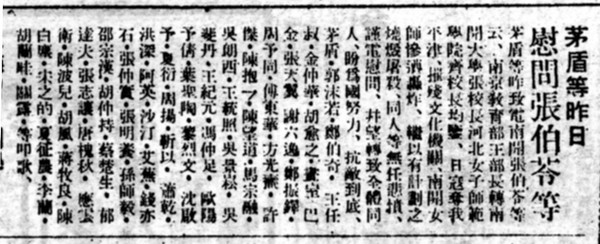 茅盾等昨日
慰問張伯苓等
茅盾等昨致電南開張伯苓等
云、南京敎育部王部長轉南
開大學張校長河北女子師範
學院齊校長均鑒、日冦奪我
平津、摧殘文化機關、南開女
師慘遭轟炸、繼以有計劃之
燒燬屠殺、同人等無任悲憤、
謹電慰問、幷望轉致全體同
人、盼爲國努力、抗敵到底、
茅盾·郭沫若·鄭伯奇·王任
叔·金仲華·胡愈之·畫室·巴
金·張天翼·謝六逸·鄭振鐸·
周予同·傅東華·方光燾·許
傑·陳抱一·陳望道·馬宗融·
吳朗西·王統照·吳景崧·吳
斐丹·王紀元·馮仲足·歐陽
予倩·葉聖陶·黎烈文·沈啟
予·夏衍·周揚·靳以·蕭乾·
洪深·阿英·沙汀·艾蕪·錢亦
石·張仲實·張明養·孫師毅·
邵宗漢·胡仲持·蔡楚生·郁
達夫·張志讓·唐槐秋·應雲
衛·陳波兒·胡風·蔣牧良·陳
白塵·宋之的·夏征農·李蘭·
胡蘭畦·關露·等叩歌、